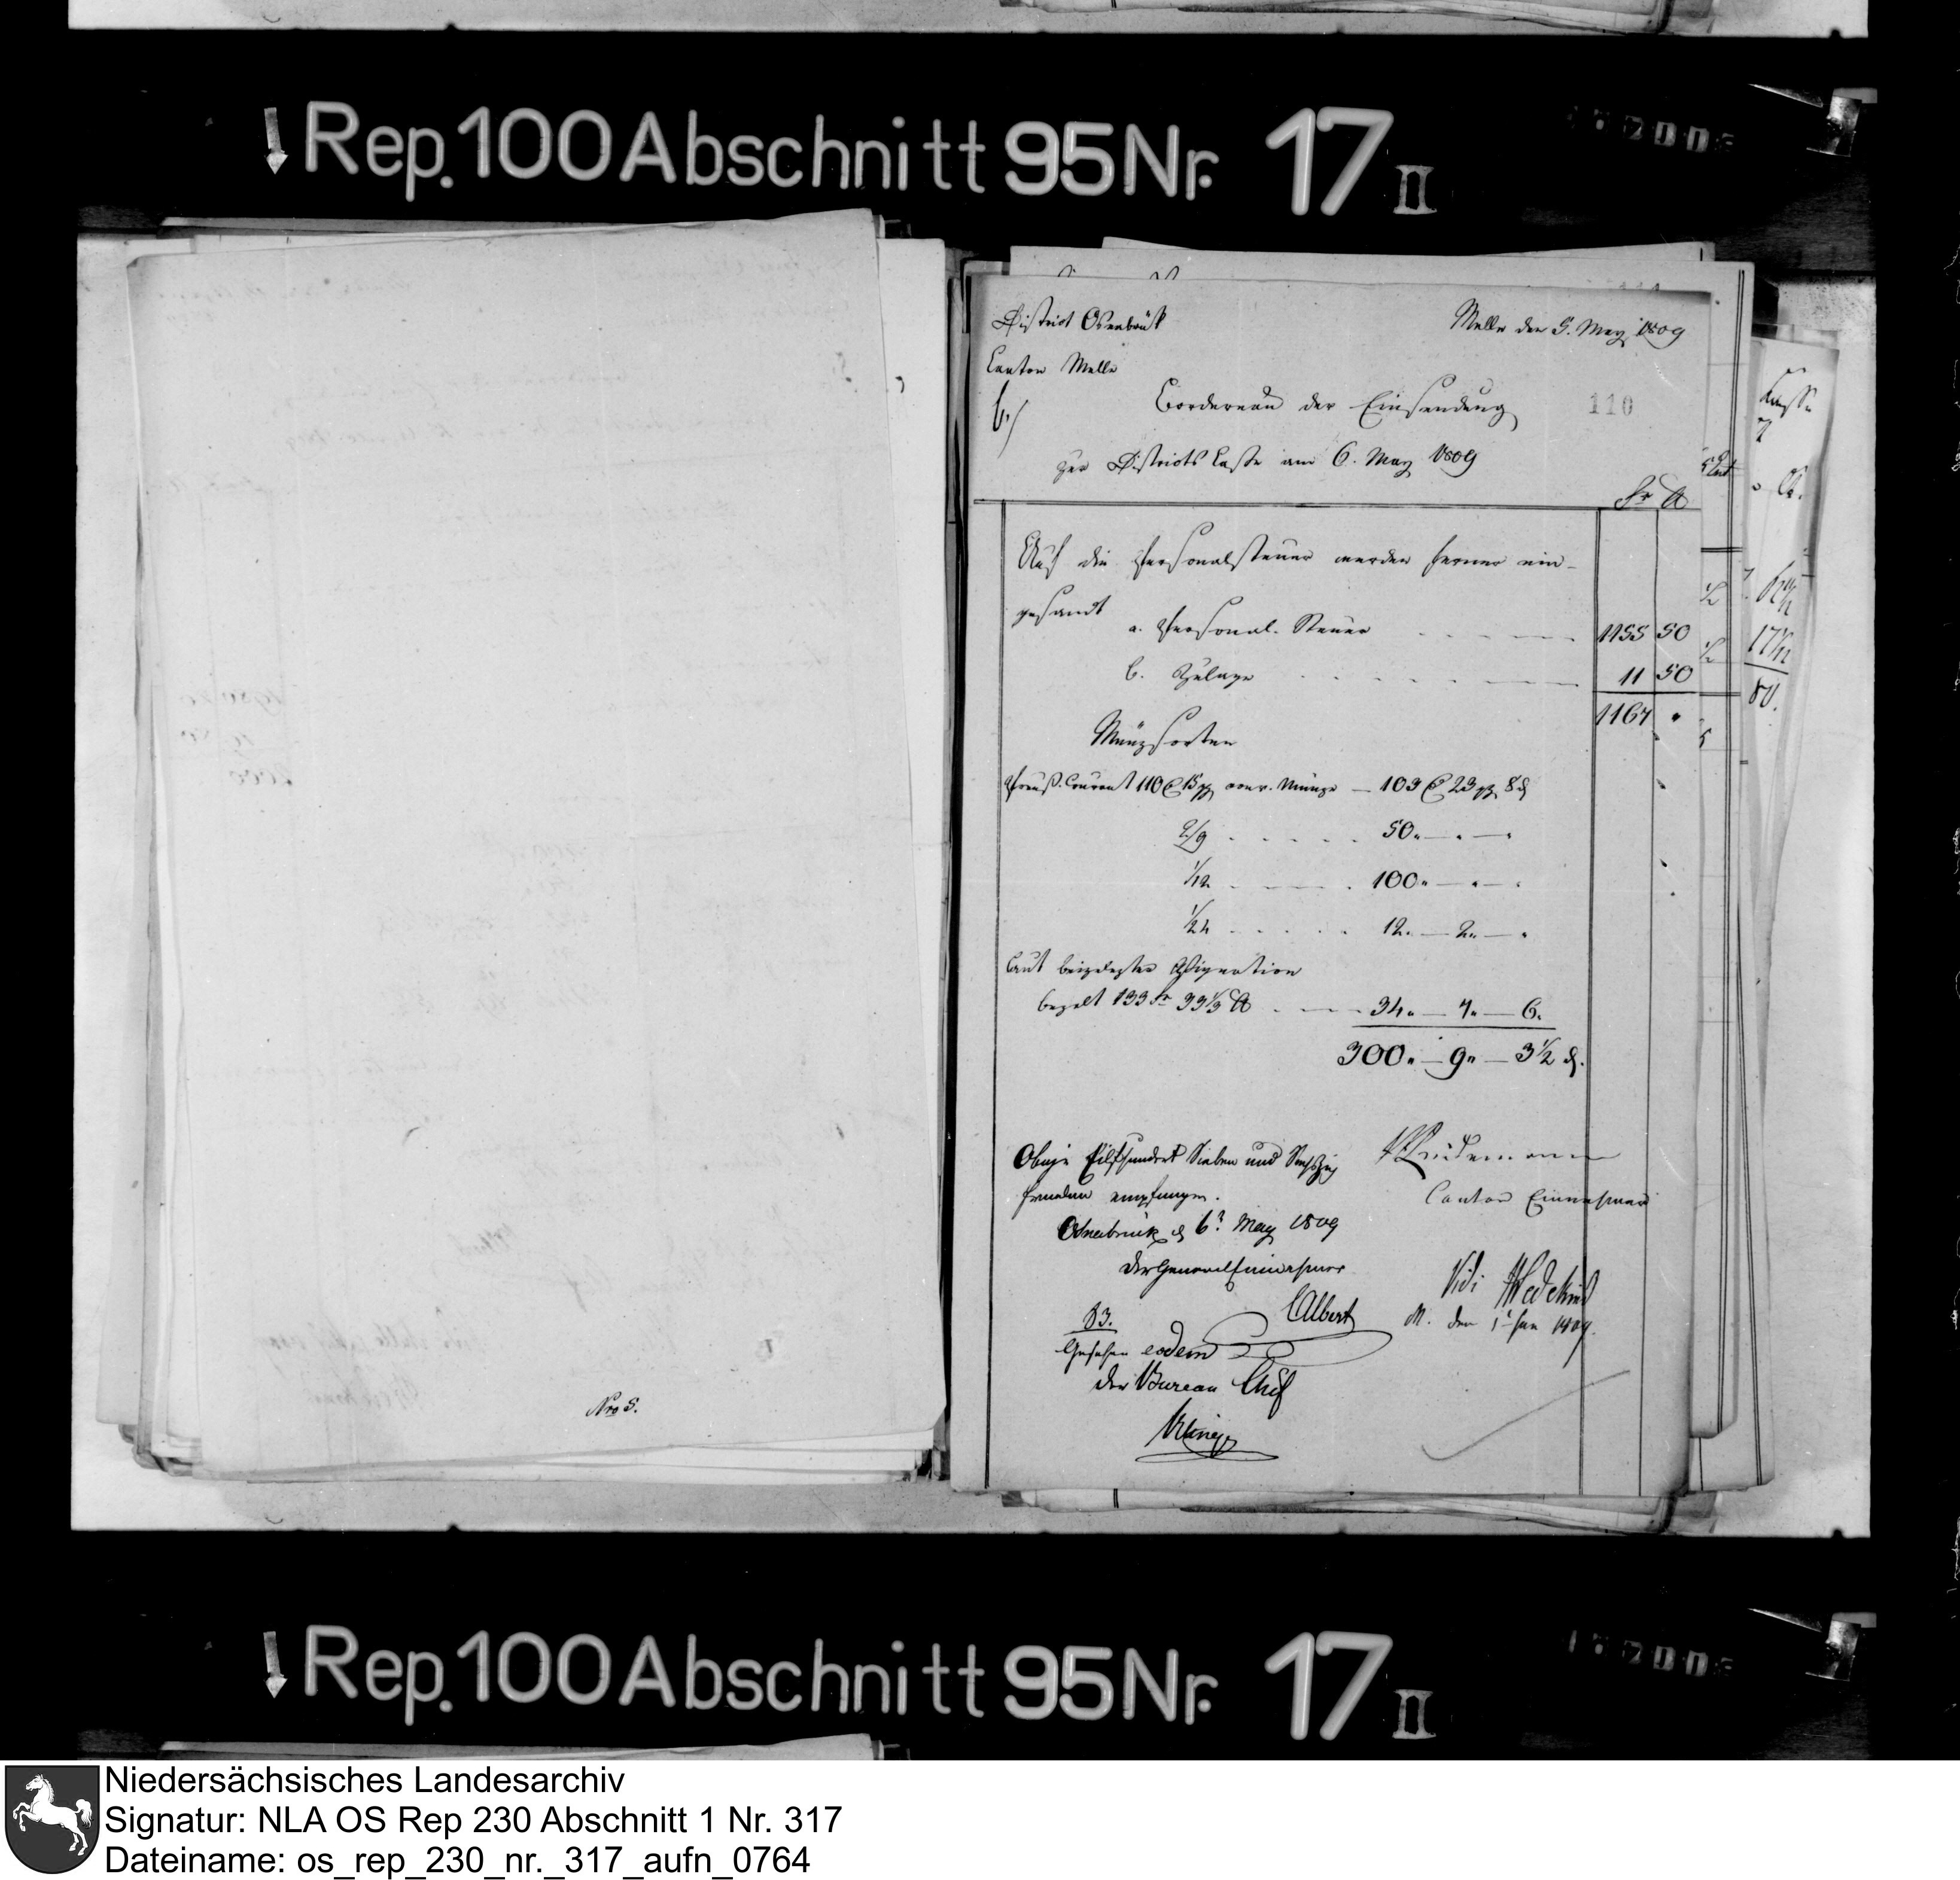 Rep. 100 Abschnitt 95 Nr. 17 II
District Osnabrük
Melle den 5. May 1809
Canton Melle
b./
Bordereau der Einsendung
110
zur Districts Casse am 6. May 1809
Fr Ct
Auf die Personalsteuer werden ferner ein-
gesandt
a. Personal-Steuer 1155 50
b. Zulage 11 50
1167 "
Münzsorten
Preuß. Courant 110 15 conv. Münze — 103 23 8 d
2/9 50 " — " — "
1/12 100 " — " — "
1/24 12 " — 2 " — "
Laut beigelegter Assignation
bezalt 133 Fr 33 1/3 Ct 34 " — 7 " — 6 "
300 " — 9 " — 3 1/2 d.
Obige Eilfhundert Sieben und Sechszig
Franken empfangen.
Canton Einnehmer
Osnabrück d 6t May 1809
Der General Einnehmer
CAlbert
Vidi Wedekind
M. den 1t Jun 1809.
83.
Gesehen eodem
der Bureau Chef
Nro 5.
Rep. 100 Abschnitt 95 Nr. 17 II
Niedersächsisches Landesarchiv
Signatur: NLA OS Rep 230 Abschnitt 1 Nr. 317
Dateiname: os_rep_230_nr._317_aufn_0764